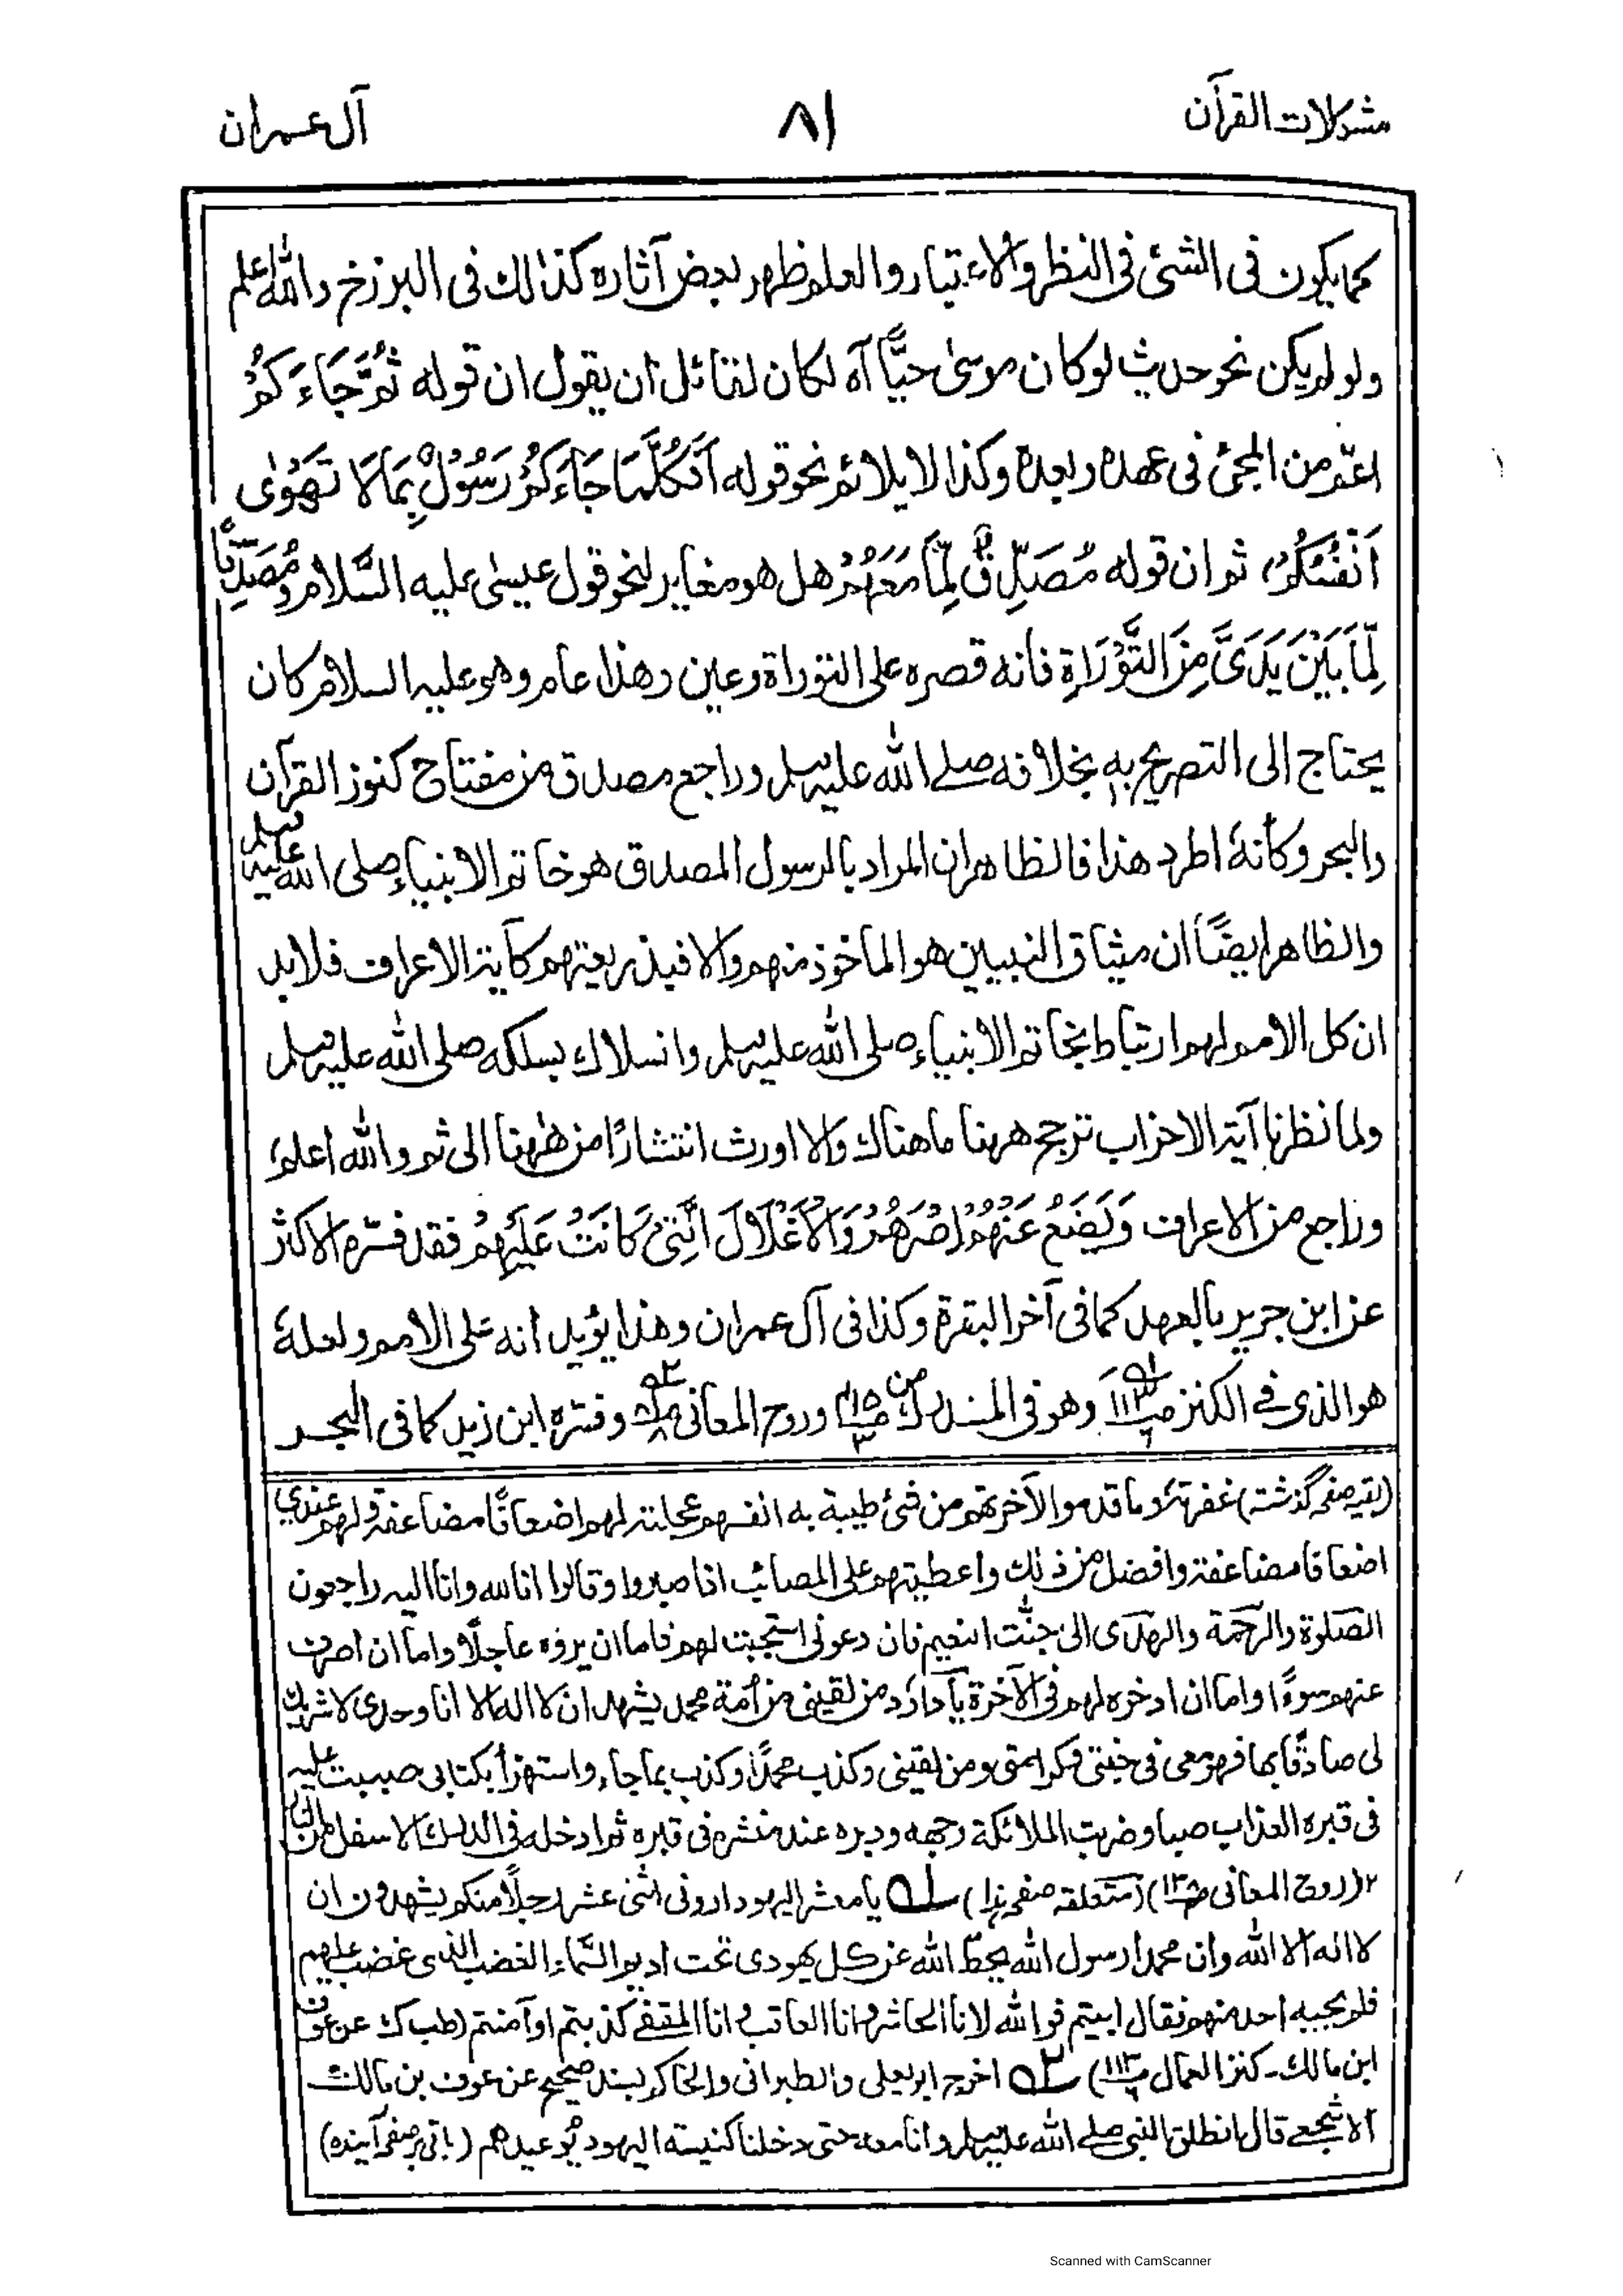 مشكلات القرآن
٨١
آل عمران
كما يكون فى الشئ فى النظر والاعتبار والعلم ظهر بعض آثاره كذالك فى البرزخ والله اعلم
ولو لم يكن نحو حديث لو كان موسىٰ حيًّا آه لكان لقائل ان يقول ان قوله ثُمَّ جَاءَ كُمْ
اعمّ من المجئ فى عهده وبعده وكذا لا يلائم نحو قوله اَفَكُلَّمَا جَاءَكُمْ رَسُوْلٌۢ بِمَا لَا تَهْوٰٓى
اَنْفُسُكُمُ ثم ان قوله مُصَدِّقٌ لِّمَا مَعَهُمْ هل هو مغاير لنحو قول عيسىٰ عليه السَّلام ومُصَدِّقًا
لِّمَا بَيْنَ يَدَىَّ مِنَ التَّوْرَاةِ فانه قصره على التوراة وعين وهذا عام وهو عليه السلام كان
يحتاج الى التصريح به بخلافه صلے الله عليه وسلم وراجع مصدق من مفتاح كنوز القرآن
والبحر وكأنهٗ اطرد هذا فالظاهر ان المراد بالرسول المصدق هو خاتم الانبياء صلى الله عليه وسلم
والظاهر ايضًا ان ميثاق النبيين هو المأخوذ منهم والا فبذريعتهم كآية الاعراف فلابد
ان كل الامم لهم ارتباط بخاتم الانبياء صلى الله عليه وسلم وانسلاك بسلكه صلى الله عليه وسلم
ولما نظرنا آية الاحزاب ترجح ههنا ما هناك والا اورث انتشارًا من ههنا الى ثم والله اعلم،
وراجع من الاعراف وَيَضَعُ عَنْهُمْ اِصْرَهُمْ وَالْاَغْلَالَ الَّتِىْ كَانَتْ عَلَيْهِمْ فقد فسّره الاكثر
عن ابن جرير بالعهد كما فى آخر البقرة وكذا فى آل عمران وهذا يؤيد انه على الامم ولعلهٗ
هو الذى فے الكنز وهو فى المستدرك من وروح المعانى وفسّره ابن زيد كما فى البحر
(بقيه صفحه گذشته) غفرته وما قدموا لآخرتهم من شئ طيبة به انفسهم عجلته لهم اضعافًا مضاعفة ولهم عندي
اضعافا مضاعفة وافضل من ذلك واعطيتهم على المصائب اذا صبروا وقالوا انا لله وانا اليه راجعون
الصّلوة والرحمة والهدى الىٰ جنّٰت النعيم فان دعونى استجبت لهم فاما ان يروه عاجلًا واما ان اصرف
عنهم سوءًا واما ان ادخره لهم فى الآخرة يآ داوٗد من لقينى من اُمة محمد يشهد ان لا اله الا انا وحدى لا شريك
لى صادقًا بها فهو معى فى جنتى وكرامتى ومن لقينى وكذب محمدًا وكذب بما جاء واستهزأ بكتابى صببت عليه
فى قبره العذاب صبا وضربت الملائكة وجهه ودبره عند منشره فى قبره ثم ادخله فى الدرك الاسفل من النار
١٢ (روح المعانى) (متعلقه صفحه هذا) ١ه يا معشر اليهود ارونى اثنى عشر رجلًا منكم يشهدون ان
لا اله الا الله وان محمدا رسول الله يحطّ الله عن كل يهودى تحت اديم السّماء الغضب الذى غضب عليهم
فلم يجبه احد منهم فقال ابيتم فوالله لانا الحاشر وانا العاقب وانا المقفے كذبتم او آمنتم (طب ك عن عوف
ابن مالك ـ كنز العمال) ٢ه اخرج ابو يعلى والطبرانى والحاكم بسند صحيح عن عوف بن مالك
الاشجعے قال انطلق النبى صلے الله عليه وسلم وانا معه حتى دخلنا كنيسة اليهود يوم عيدهم (باقى بر صفحه آينده)
Scanned with CamScanner